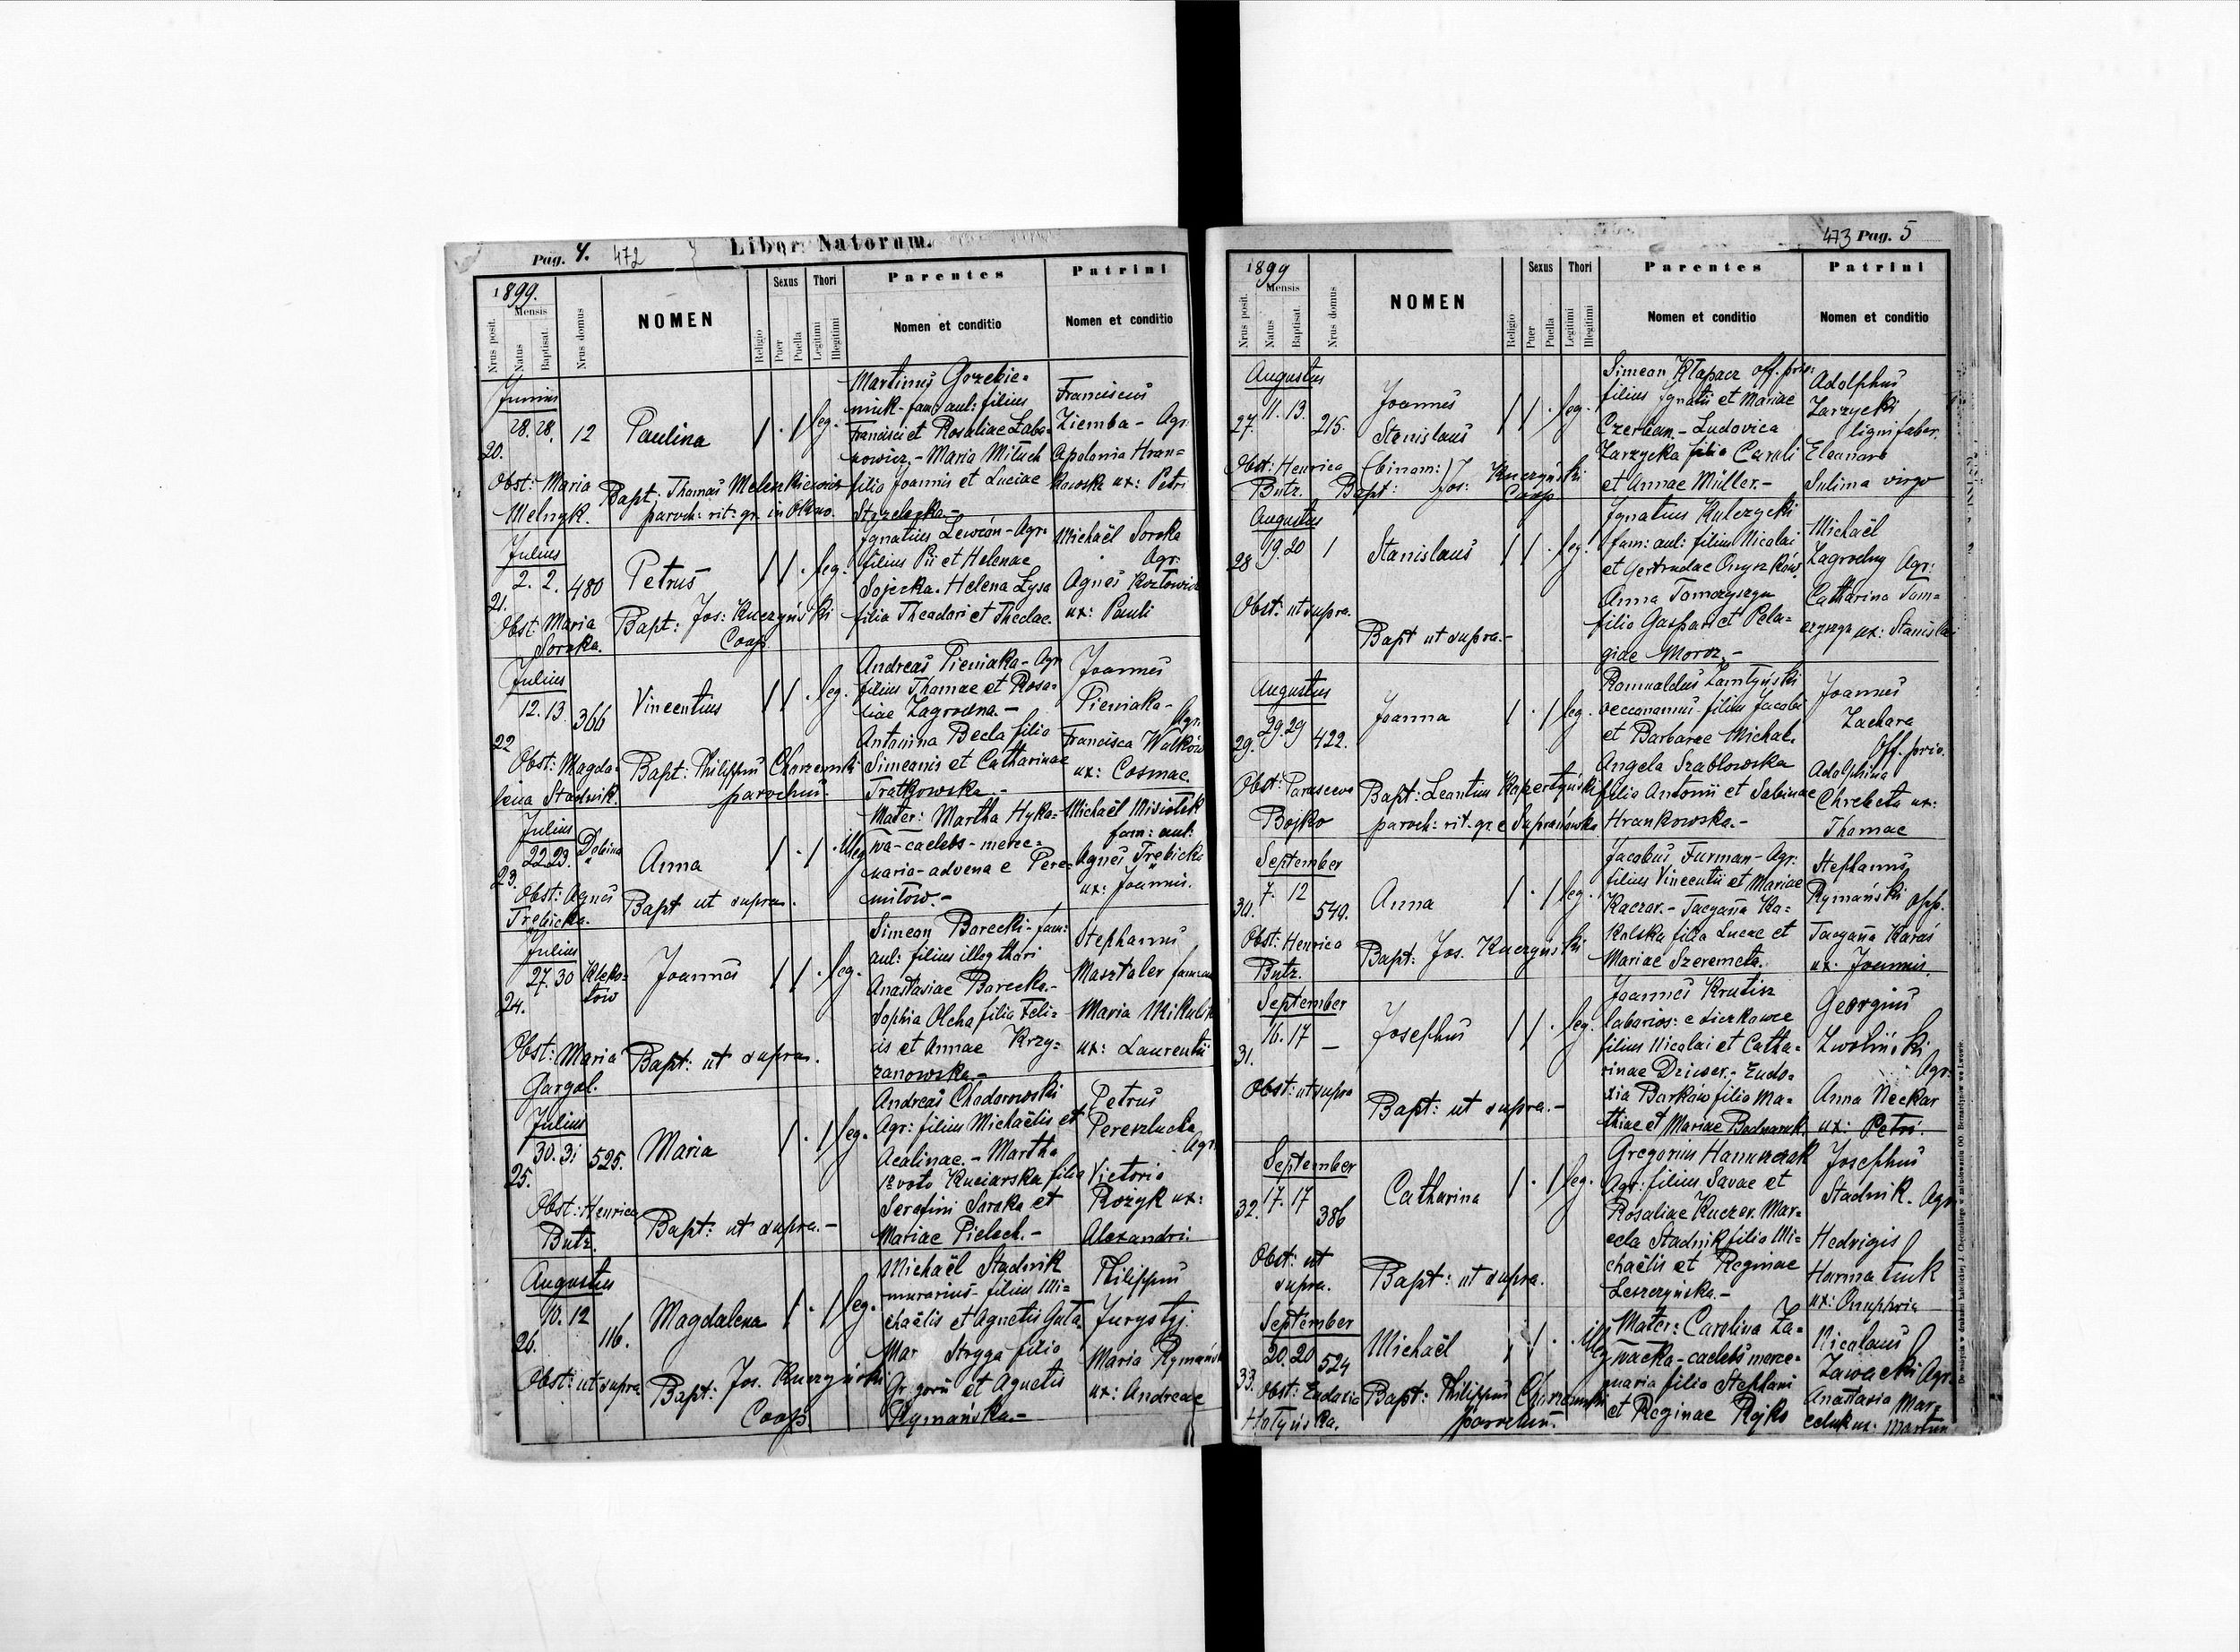 Pag. 4. 472 Liber Natorum.
1899. Mensis
Nrus posit. Natus Baptisat. Nrus domus NOMEN Religio Sexus Puer Puella Thori Legitimi Illegitimi Parentes Nomen et conditio Patrini Nomen et conditio
Junius
20. 28. 28. 12 Paulina 1 . 1 leg.
Martinus Grzebie=
niuk - fam: aul: filius
Francisci et Rosaliae Laba=
nowicz. - Maria Mituch
filia Joannis et Luciae
Strzelecka. -
Franciscus
Ziemba - Agr.
Apolonia Hran=
kowska ux: Petri
Obst: Maria
Melnyk.
Bapt: Thomas
paroch: rit: gr. in
Julius
21. 2. 2. 480 Petrus 1 1 . leg.
Ignatius Lewcón - Agr:
filius Pii et Helenae
Sojecka. Helena Łysa
filia Theodori et Theclae.
Michaël Soroka
Agr.
Agnes Kozłowicz
ux: Pauli
Obst: Maria
Soroka.
Bapt: Jos: Kuczyński
Coop.
Julius
22 12. 13. 366 Vincentius 1 1 . leg.
Andreas Pieniaka - Agr
filius Thomae et Rosa=
liae Zagrodna. -
Antonina Decla filia
Simeonis et Catharinae
Tratkowska. -
Joannes
Pieniaka -
Agr.
Francisca Walków
ux: Cosmae.
Obst: Magda=
lena Stadnik.
Bapt: Philippus Chorzemski
parochus.
Julius
23. 22. 23. Dolina Anna 1 . 1 . illeg
Mater: Martha Hyka=
wa - caelebs - merce=
naria - advena e Pere=
miłow. -
Michaël Misiołek
fam: aul:
Agnes Trębicka
ux: Joannis.
Obst: Agnes
Trębicka.
Bapt ut supra.
Julius
24. 27. 30 Kleko=
tów Joannes 1 1 . leg.
Simeon Barecki - fam:
aul: filius illeg thori
Anastasiae Barecka. -
Sophia Olcha filia Feli=
cis et Annae Krzy=
zanowska. -
Stephanus
Masztaler fam: aul
Maria Mikulska
ux: Laurentii
Obst: Maria
Gargol.
Bapt: ut supra.
Julius
25. 30. 31 525. Maria 1 . 1 leg.
Andreas Chodorowski
Agr: filius Michaëlis et
Acalinae. - Martha
1º voto Kuciarska filia
Serafini Soroka et
Mariae Pielech. -
Petrus
Pereszlucha
Agr.
Victoria
Rożyk ux:
Alexandri.
Obst: Henrica
Butz.
Bapt: ut supra. -
Augustus
26. 10. 12 116. Magdalena 1 . 1 leg.
Michaël Stadnik
murarius - filius Mi=
chaëlis et Agnetis Gula.
Mar Stryga filia
Gr gorii et Agnetis
Rymańska. -
Philippus
Jurystyj.
Maria Rymańska
ux: Andreae
Obst: ut supra
Bapt: Jos. Kuczyński
Coop.
473 Pag. 5
1899 Mensis
Nrus posit. Natus Baptisat. Nrus domus NOMEN Religio Sexus Puer Puella Thori Legitimi Illegitimi Parentes Nomen et conditio Patrini Nomen et conditio
Augustus
27. 11. 13. 215. Joannes
Stanislaus 1 1 . leg.
Simeon Kłapacz off. priv:
filius Ignatii et Mariae
Czerban. - Ludovica
Zarzycka filia Caroli
et Annae Müller. -
Adolphus
Zarzycki
lignifaber.
Eleonora
Sulima virgo
Obst: Henrica
Butz.
(binom:)
Bapt: Jos: Kuczyński
Coop
Augustus
28 19. 20 1 Stanislaus 1 1 . leg.
Ignatius Kulczycki
fam: aul: filius Nicolai
et Gertrudae Onyszków.
Anna Tomczyszyn
filia Gaspari et Pela=
giae Moroz. -
Michaël
Zagrodny Agr:
Catharina Tom=
czyszyn ux: Stanislai
Obst. ut supra.
Bapt ut supra. -
Augustus
29. 29. 29 422. Joanna 1 . 1 leg.
Romualdus Zamłyński
oeconomus - filius Jacobi
et Barbarae Michal.
Angela Szablowska
filia Antonii et Sabinae
Hrankowska. -
Joannes
Zachara
Off. priv.
Adolphina
Chrebeta ux:
Thomae
Obst: Parasceva
Bojko
Bapt: Leontius
paroch: rit. gr. e Supranówka
September
30. 7. 12 549. Anna 1 . 1 leg.
Jacobus Furman - Agr:
filius Vincentii et Mariae
Kaczor. - Tacyana Ka=
kolska filia Lucae et
Mariae Szeremeta.
Stephanus
Rymański opp.
Tacyana Karaś
ux: Joannis.
Obst: Henrica
Butz.
Bapt: Jos. Kuczyński
September
31. 16. 17 — Josephus 1 1 . leg.
Joannes Krutisz
laborios: e Sieńkowce
filius Nicolai et Catha=
rinae Dziuser. - Eudo=
xia Barków filia Ma=
thiae et Mariae Bodnaruk.
Georgius
Zwoliński
Agr.
Anna Neckar
ux: Petri.
Obst: ut supra
Bapt: ut supra. -
September
32. 17. 17 386 Catharina 1 . 1 leg.
Gregorius Hanuszczak
Agr: filius Savae et
Rosaliae Kuczer. Mar=
cela Stadnik filia Mi=
chaëlis et Reginae
Leszczyńska. -
Josephus
Stadnik. Agr
Hedvigis
Harmatiuk
ux: Onuphria
Obst: ut
supra.
Bapt: ut supra.
September
33. 20. 20 524 Michaël 1 1 . . illeg
Mater: Carolina Za=
wacka - caelebs merce=
naria filia Stephani
et Reginae Rojko
Nicolaus
Zawacki Agr.
Anastasia Mar=
celuk ux: Martini
Obst: Eudoxia
Hołyńska.
Bapt: Philippus Chorzemski
parochus.